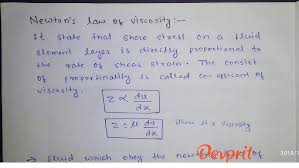 Newton's law of viscosity:-
It state that shore stress on a fluid
element layer is directly proportional to
the rate of shear strain. The consist
of proportinality is called co-efficent of
viscocity.
τ α du/dx
τ = μ du/dx where μ = viscosity
Devprit
→ fluid which obey the newton of
2019/